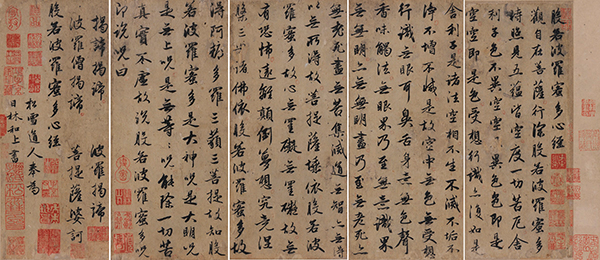 般若波羅蜜多心經
觀自在菩薩行深般若波羅蜜多
時照見五蘊皆空度一切苦厄舍
利子色不異空空不異色色即是
空空即是色受想行識亦復如是
舍利子是諸法空相不生不滅不垢不
淨不增不減是故空中無色無受想
行識無眼耳鼻舌身意無色聲
香味觸法無眼界乃至無意識界
無無明亦無無明盡乃至無老死亦
無老死盡無苦集滅道無智亦無得
以無所得故菩提薩埵依般若波
羅蜜多故心無罣礙無罣礙故無
有恐怖遠離顛倒夢想究竟涅
槃三世諸佛依般若波羅蜜多故
得阿耨多羅三藐三菩提故知般
若波羅蜜多是大神呪是大明呪
是無上呪是無等等呪能除一切苦
真實不虛故說般若波羅蜜多呪
即說呪曰
揭諦揭諦 波羅揭諦
波羅僧揭諦 菩提薩婆訶
松雪道人奉為
日林和上書